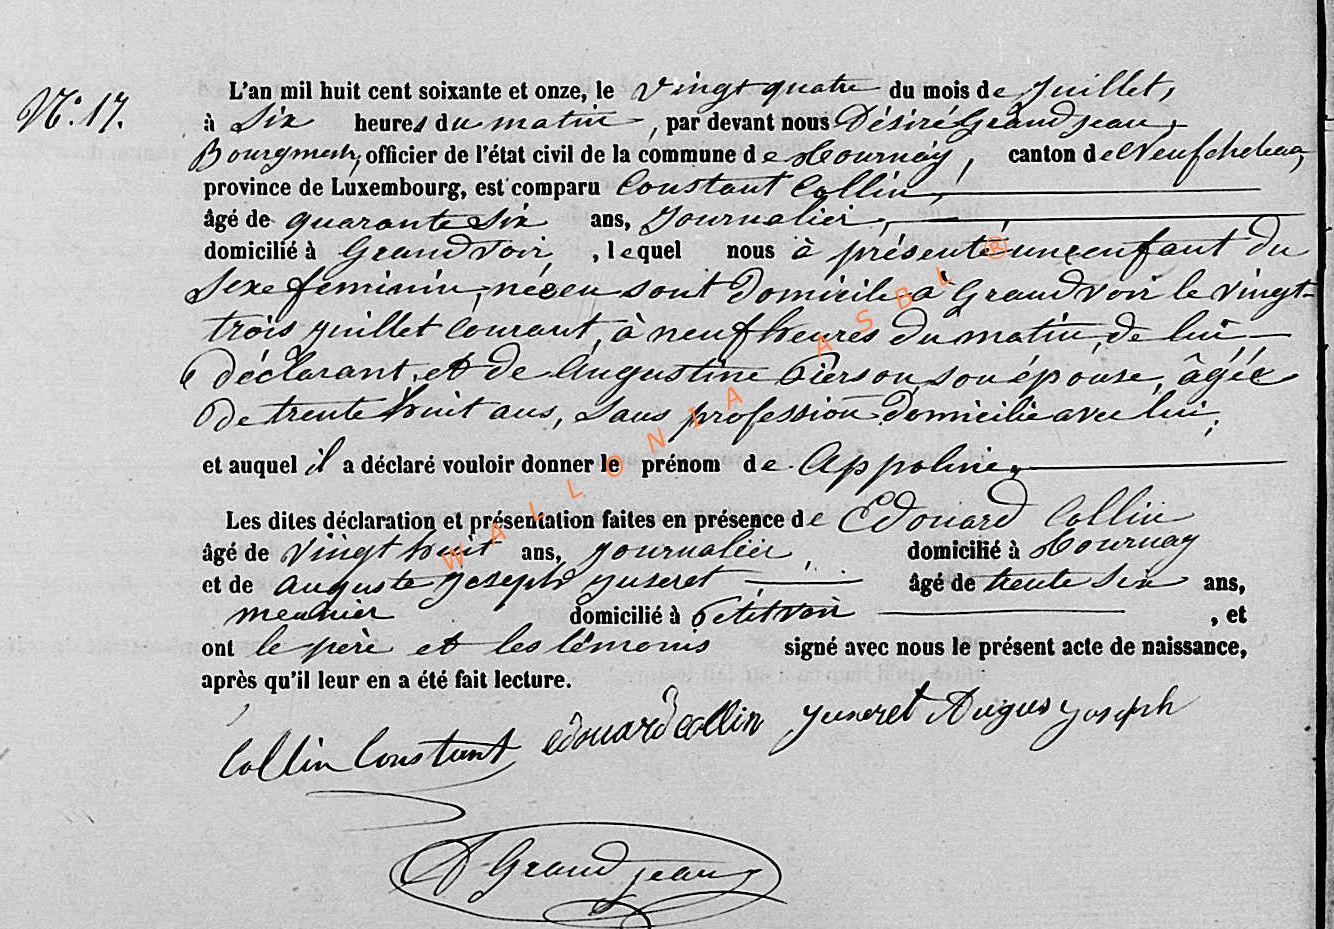 N.° 17.
L'an mil huit cent soixante et onze, le vingt quatre du mois de Juillet,
à Six heures du matin, par devant nous Désiré Grandjean,
Bourgmestre, officier de l'état civil de la commune de Tournay, canton de Neufchateau,
province de Luxembourg, est comparu Constant Collin,
âgé de quarante six ans, Journalier,
domicilié à Grandvoir, lequel nous à présenté un enfant du
Sexe féminin, née en sont domicile à Grandvoir le vingt-
trois juillet courant, à neuf heures du matin, de lui
déclarant, et de Augustine Pierson, son épouse, âgée
de trente huit ans, sans profession domicilié avec lui,
et auquel il a déclaré vouloir donner le prénom de Appoline,
Les dites déclaration et présentation faites en présence de Edouard Collin
âgé de vingt huit ans, journalier domicilié à Tournay
et de Auguste Joseph Juseret âgé de trente six ans,
meunier domicilié à Petitvoir, et
ont le père et les témoins signé avec nous le présent acte de naissance,
après qu'il leur en a été fait lecture.
Collin Constant edouard collin Juseret Augus Joseph
D Grandjean
WALLONIA ASBL ®